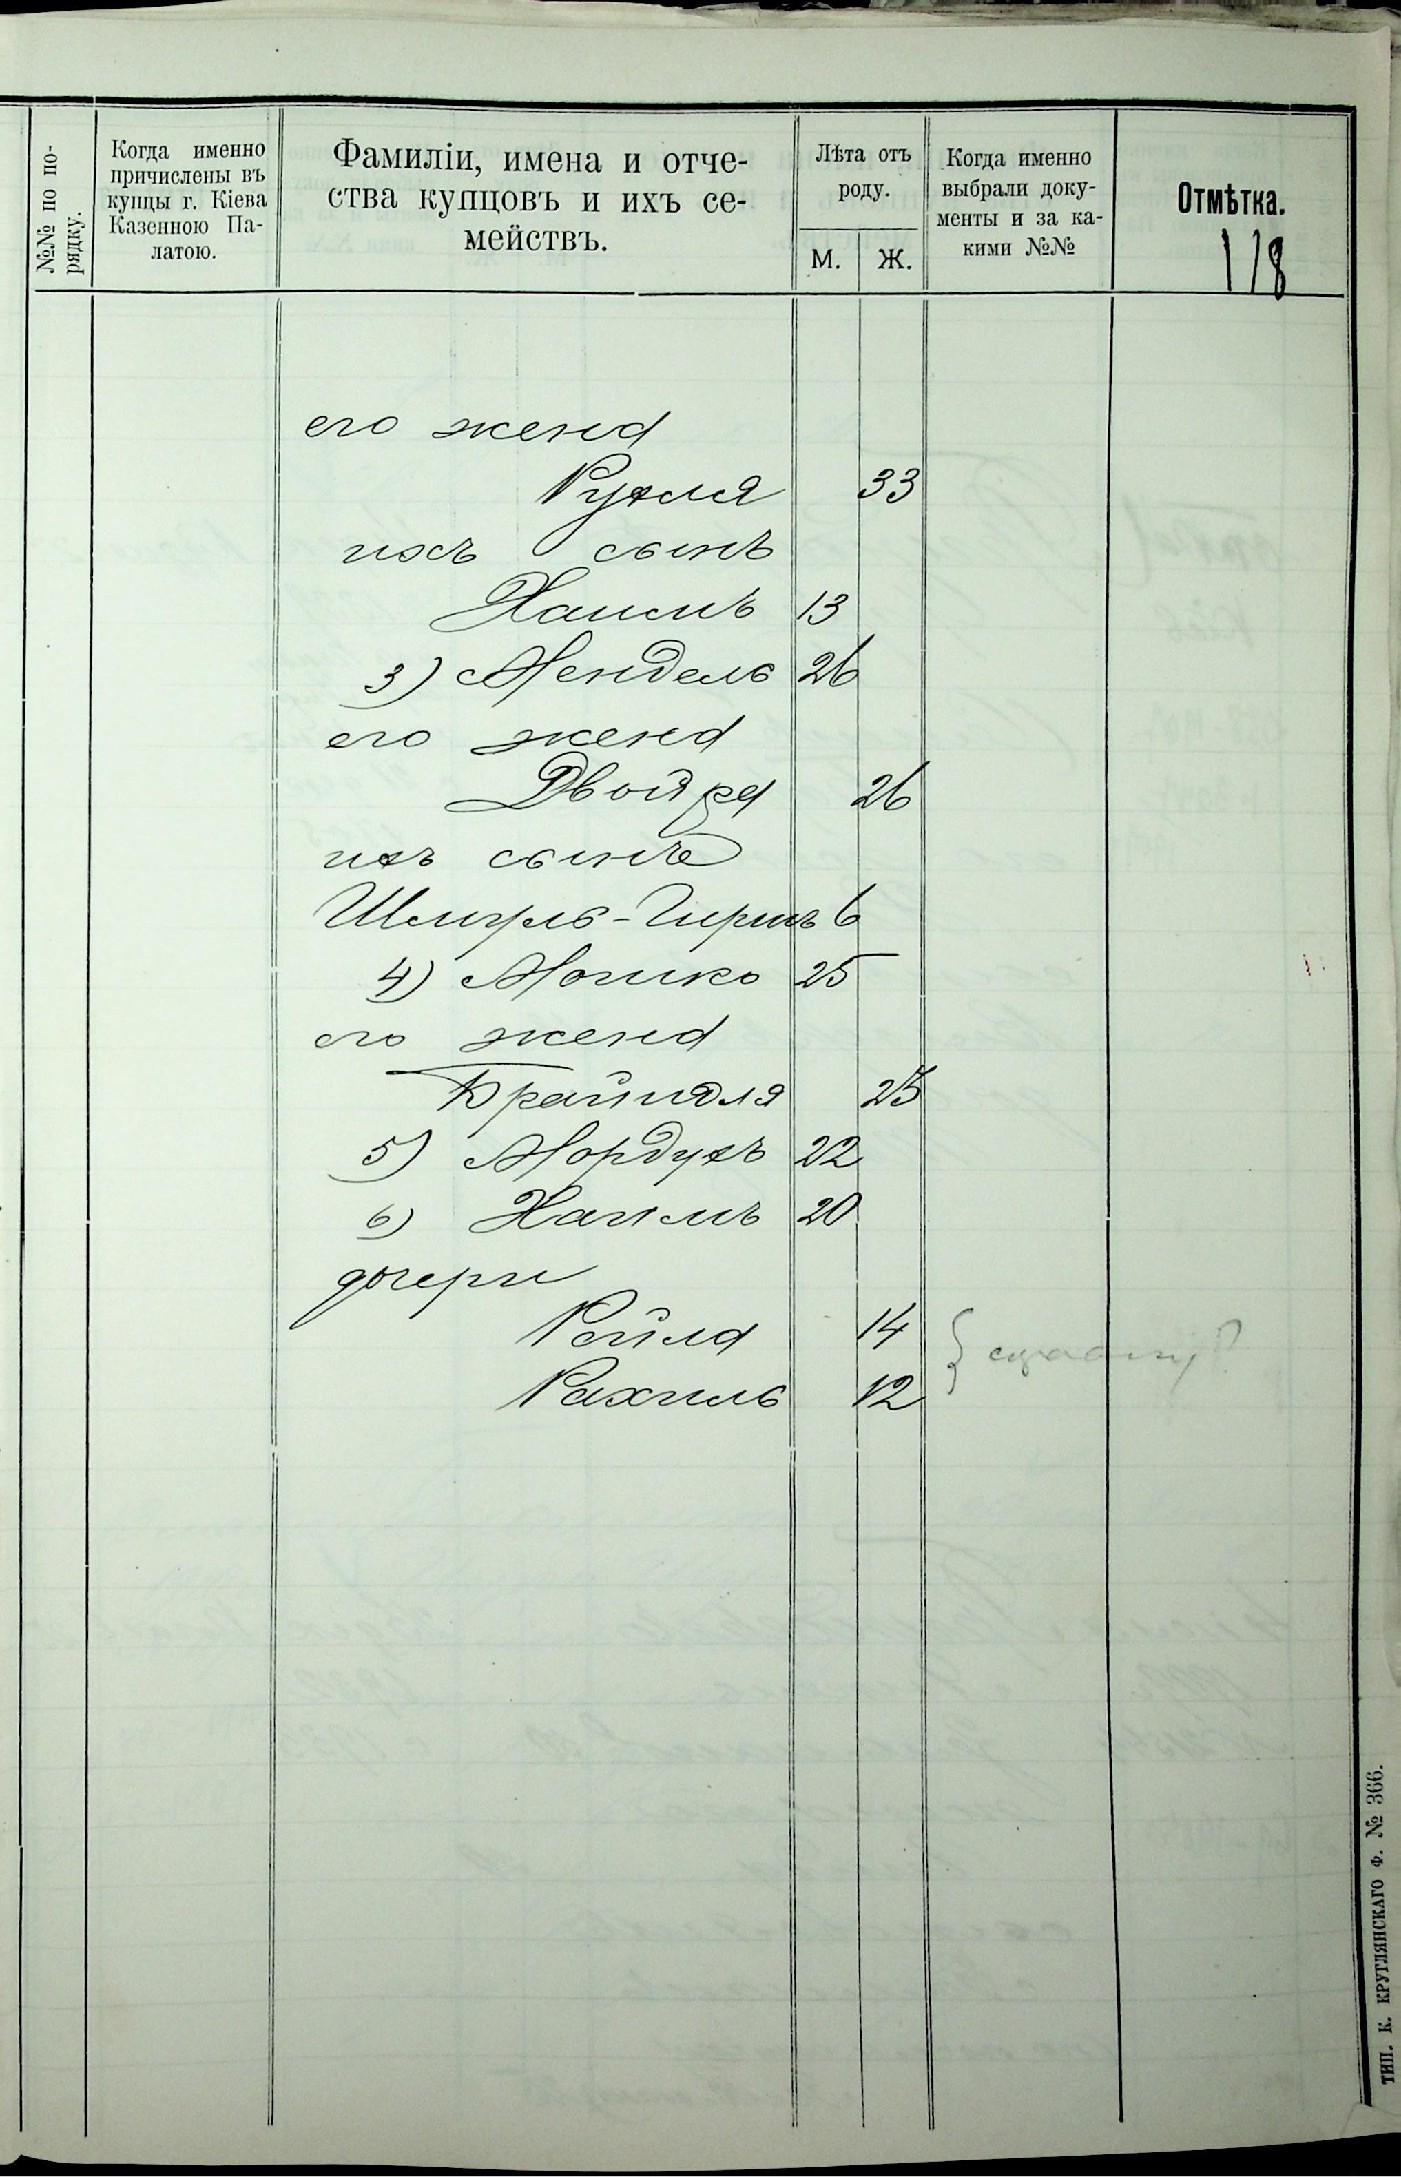 №№ по по-
рядку.
Когда именно
причислены въ
купцы г. Кіева
Казенною Па-
латою.
Фамиліи, имена и отче-
ства купцовъ и ихъ се-
мействъ.
Лѣта отъ
роду.
М.
Ж.
Когда именно
выбрали доку-
менты и за ка-
кими №№
Отмѣтка.
118
его жена
Рухля 33
ихъ сынъ
Хаимъ 13
3) Мендель 26
его жена
Двойра 26
ихъ сынъ
Шмуль-Гершъ 6
4) Мошко 25
его жена
Брайндля 25
5) Мордухъ 22
6) Хаимъ 20
дочери
Рейла 14
Рахиль 12
ТИП. К. КРУГЛЯНСКАГО Ф. № 366.